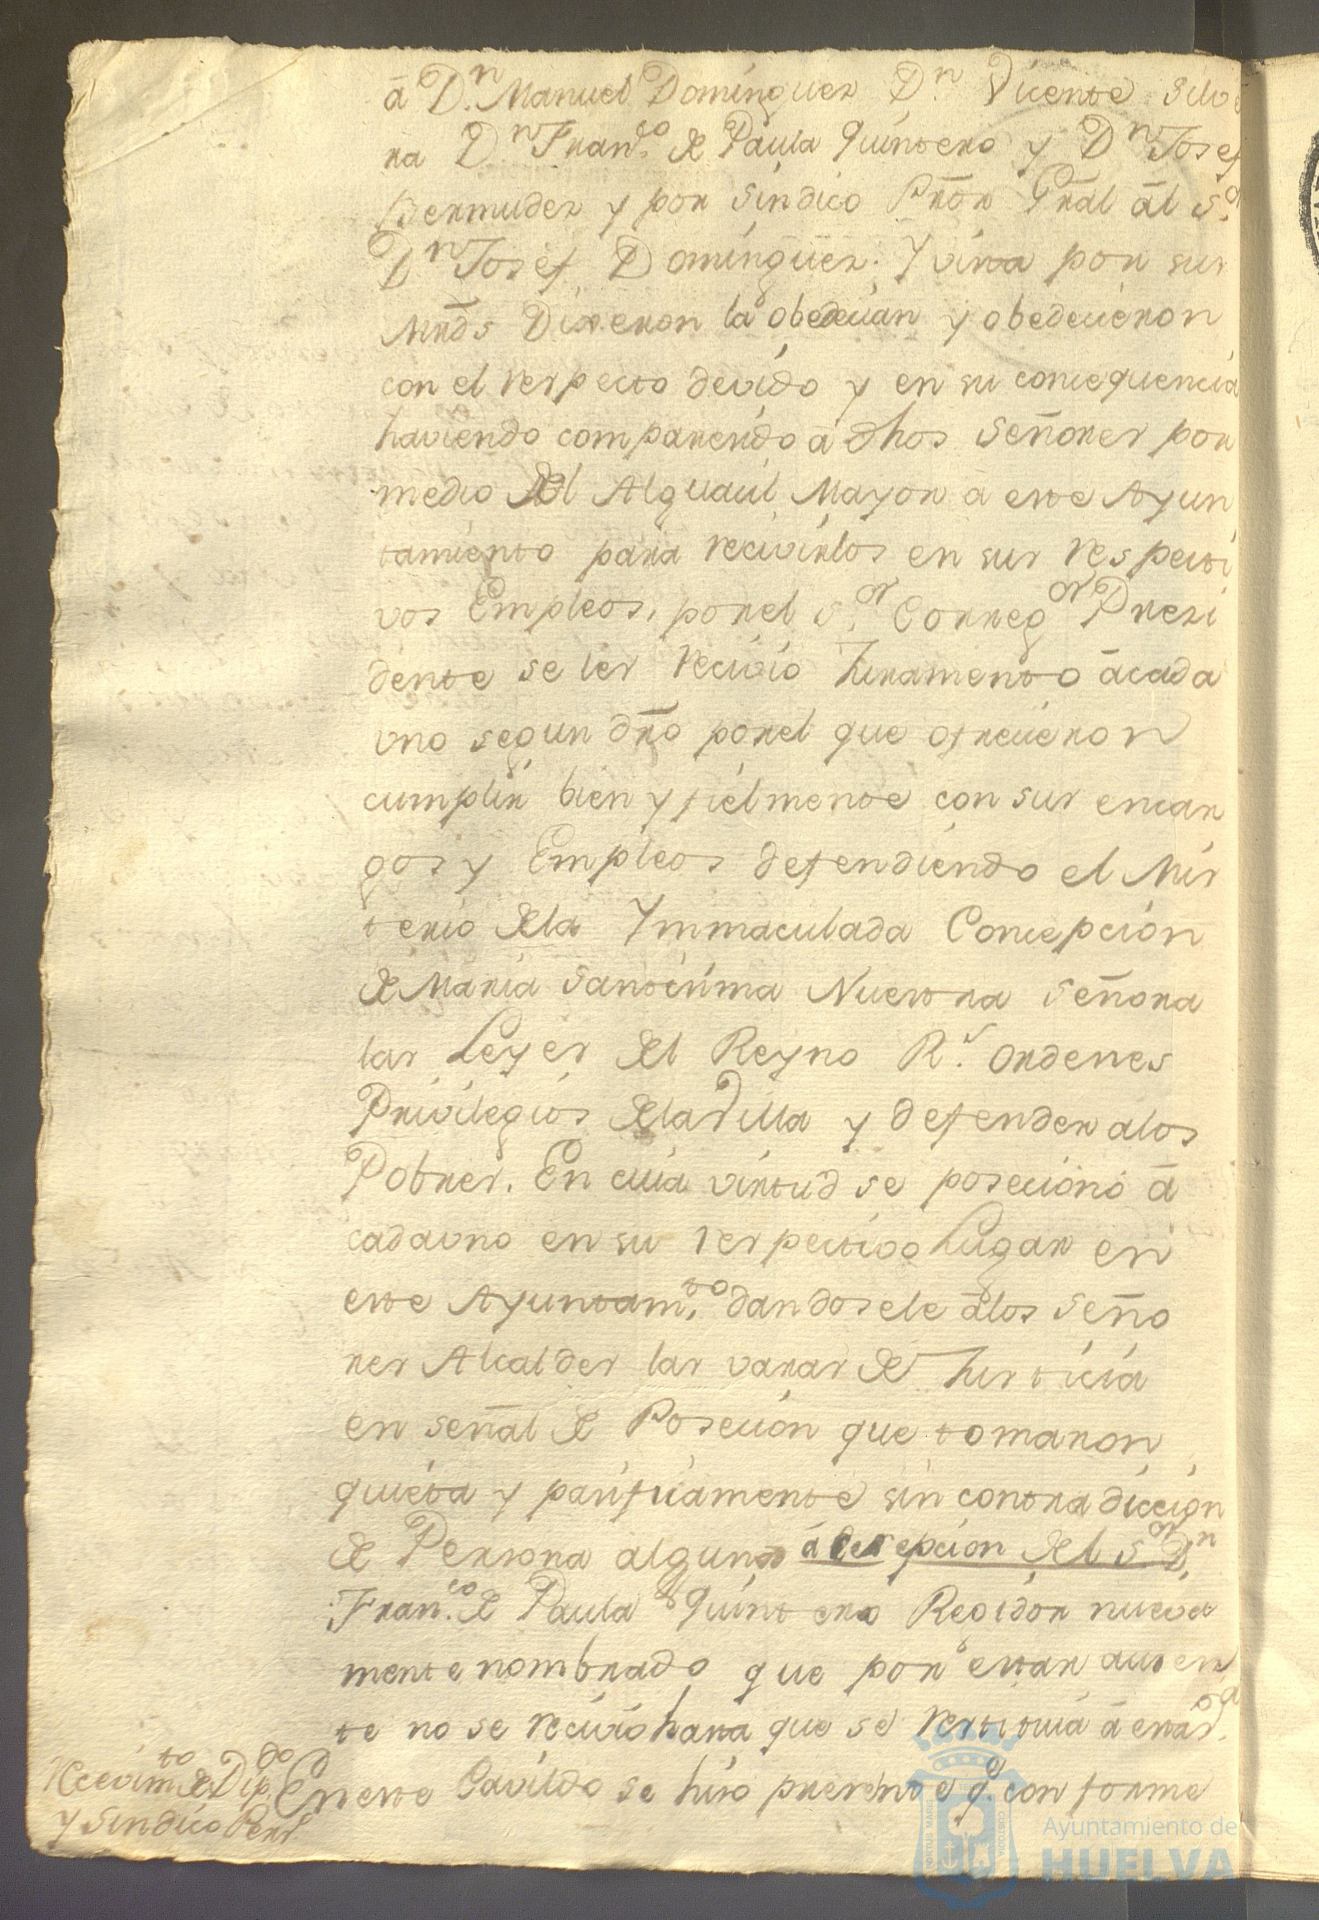 â D.n Manuel Dominguez D.n Vicente Silve
ra D.n Fran.co de Paula Quintero y D.n Josef
Bermudez y por sindico Prõr Grãl âl S.or
D.n Josef Dominguez: Y vista por sus
Mrds Dixeron la obedecian y obedecieron
con el respecto devido y en su consequencia
haviendo comparecido â dhos Señores por
medio del Alguacil Mayor â este Ayun
tamiento para recivirlos en sus respecti
vos Empleos, por el S.or Correg.or Presi
dente se les recivio Juramento âcada
uno segun dr̃o porel que ofrecieron
cumplir bien y fielmente con sus encar
gos y Empleos defendiendo el Mis
terio dela Ymmaculada Concepcion
de Maria Santisima Nuestra Señora
las Leyes del Reyno R.s ordenes
Privilegios dela Villa y defender alos
Pobres. En cuia virtud se posecionó â
cadauno en su respectivo Lugar en
este Ayuntam.to dandosele âlos Seño
res Alcaldes las varas de Justicia
en señal de Posecion que tomaron
quieta y pasificamente sin contradiccion
de Persona alguna á ecsepcion del S.or D.n
Fran.co de Paula Quintero Regidor nueva
mente nombrado que por estar ausen
te no se recivio hasta que se restituia â esta
Recevim.to de Dip.dos
y Sindico Pers.
En este Cavildo se hiso presente q.e conforme
Ayuntamiento de
HUELVA